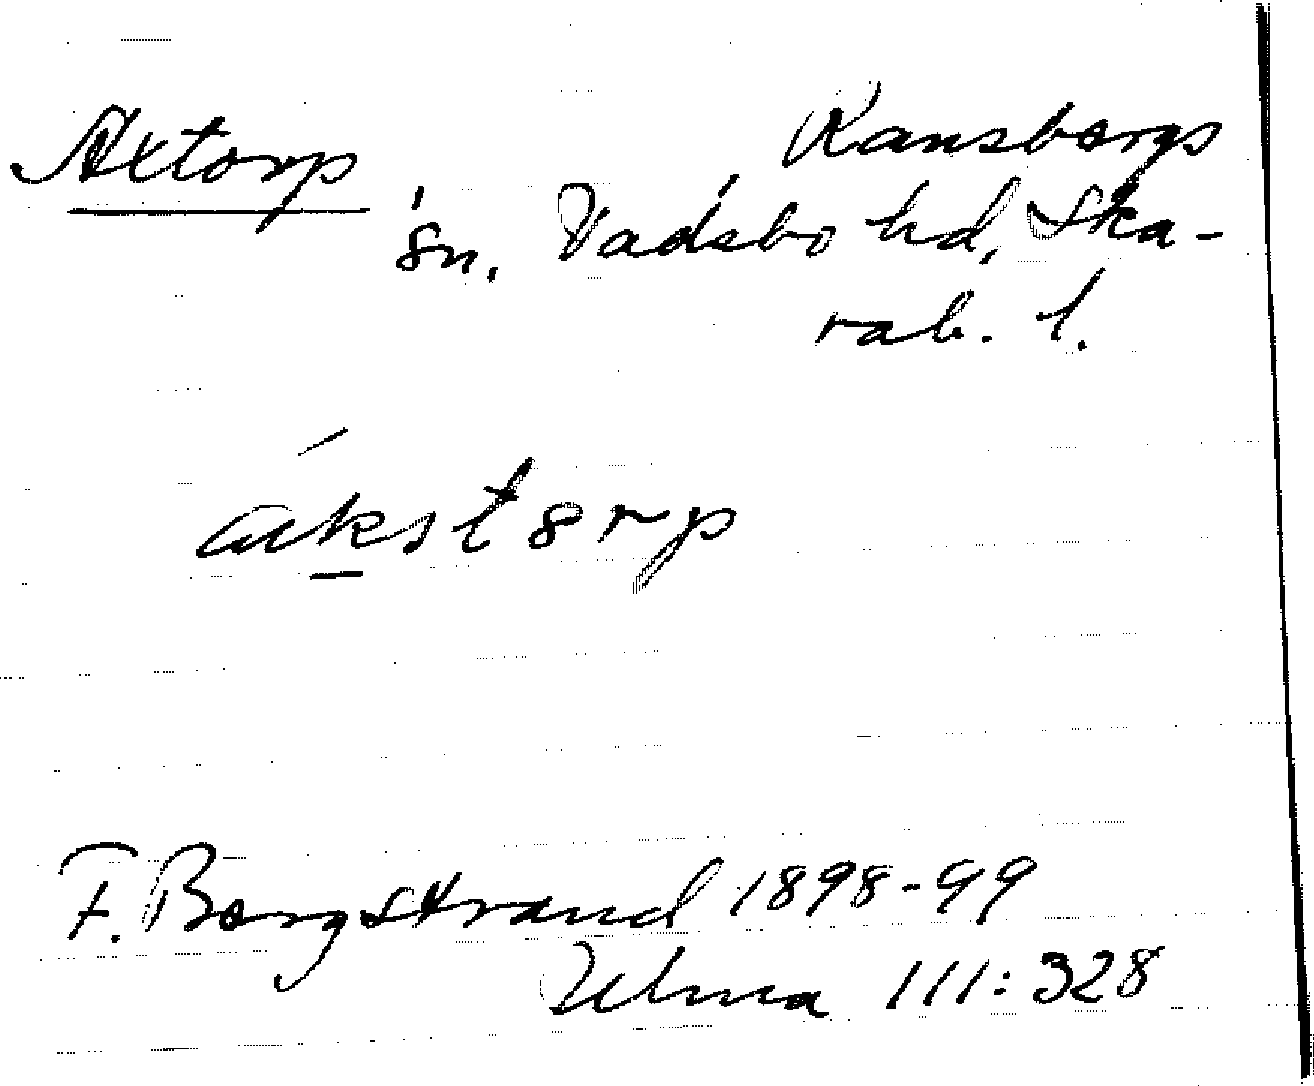 Axtorp
Ransbergs
sn. Vadsbo hd, Ska-
rab. l.
äkstorp
F. Borgstrand 1898-99
Ulma 111:328